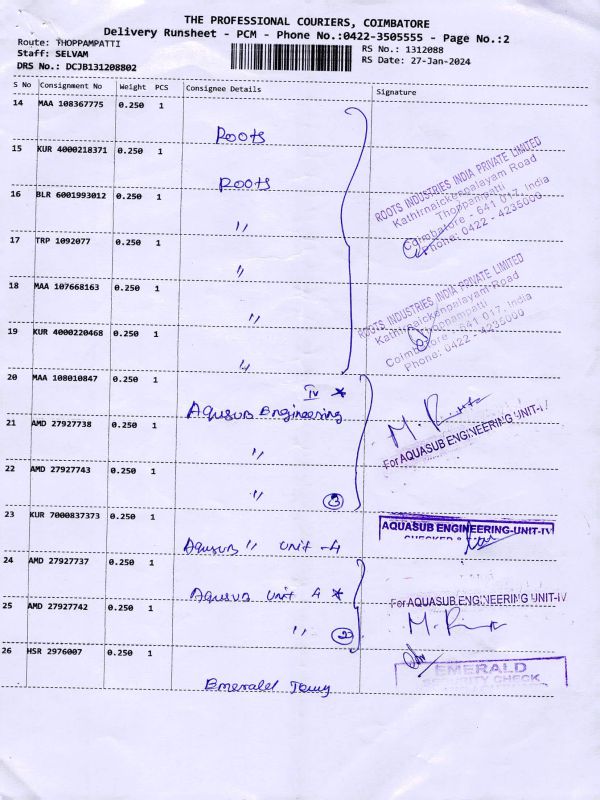 THE PROFESSIONAL COURIERS, COIMBATORE
Delivery Runsheet - PCM - Phone No.:0422-3505555 - Page No.:2
Route: THOPPAMPATTI
Staff: SELVAM
DRS No.: DCJB131208802
RS No.: 1312088
RS Date: 27-Jan-2024
S No Consignment No Weight PCS Consignee Details Signature
14 MAA 108367775 0.250 1
Roots
15 KUR 4000218371 0.250 1
Roots
16 BLR 6001993012 0.250 1
〃
17 TRP 1092077 0.250 1
〃
18 MAA 107668163 0.250 1
〃
19 KUR 4000220468 0.250 1
〃
ROOTS INDUSTRIES INDIA PRIVATE LIMITED
Kathirnaickenpalayam Road
Thoppampatti
Coimbatore - 641 017, India
Phone: 0422 - 4235000
ROOTS INDUSTRIES INDIA PRIVATE LIMITED
Kathirnaickenpalayam Road
Thoppampatti
Coimbatore - 641 017, India
Phone: 0422 - 4235000
20 MAA 108010847 0.250 1
IV *
Aqusub Engineering
21 AMD 27927738 0.250 1
〃
22 AMD 27927743 0.250 1
〃 3
For AQUASUB ENGINEERING UNIT-IV
23 KUR 7000837373 0.250 1
Aqusub 〃 Unit -4
AQUASUB ENGINEERING-UNIT-IV
24 AMD 27927737 0.250 1
Aqusub Unit 4 *
25 AMD 27927742 0.250 1
〃
For AQUASUB ENGINEERING UNIT-IV
26 HSR 2976007 0.250 1
Emerald
EMERALD
SECURITY CHECK